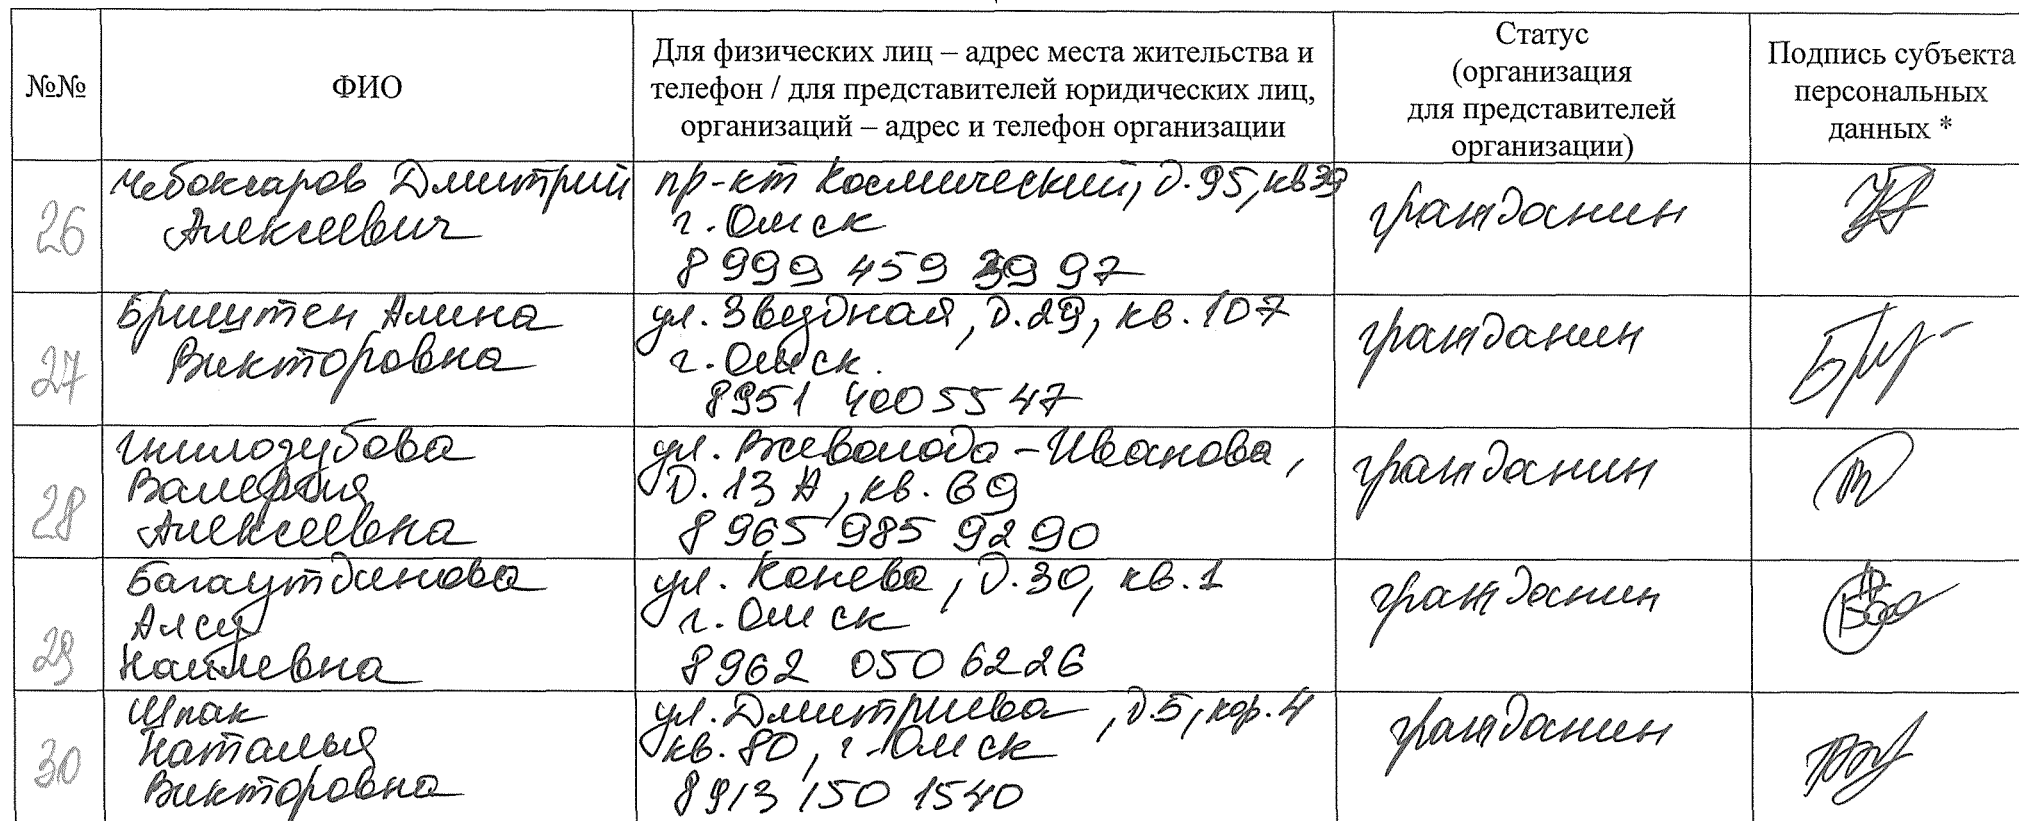 №№
ФИО
Для физических лиц – адрес места жительства и
телефон / для представителей юридических лиц,
организаций – адрес и телефон организации
Статус
(организация
для представителей
организации)
Подпись субъекта
персональных
данных *
26
Чебоксаров Дмитрий
Алексеевич
пр-кт Космический, д.95, кв39
г. Омск
8 999 459 39 97
гражданин
27
Бриштен Алина
Викторовна
ул. Звездная, д.29, кв. 107
г. Омск.
8951 400 55 47
гражданин
28
Гнилозубова
Валерия
Алексеевна
ул. Всеволода-Иванова,
д. 13 А, кв. 69
8 965 985 92 90
гражданин
29
Багаутдинова
Алсу
Наилевна
ул. Конева, д.30, кв. 1
г. Омск
8962 050 6226
гражданин
30
Шпак
Наталья
Викторовна
ул. Дмитриева, д.5, кор. 4
кв. 80, г. Омск
8913 150 1540
гражданин